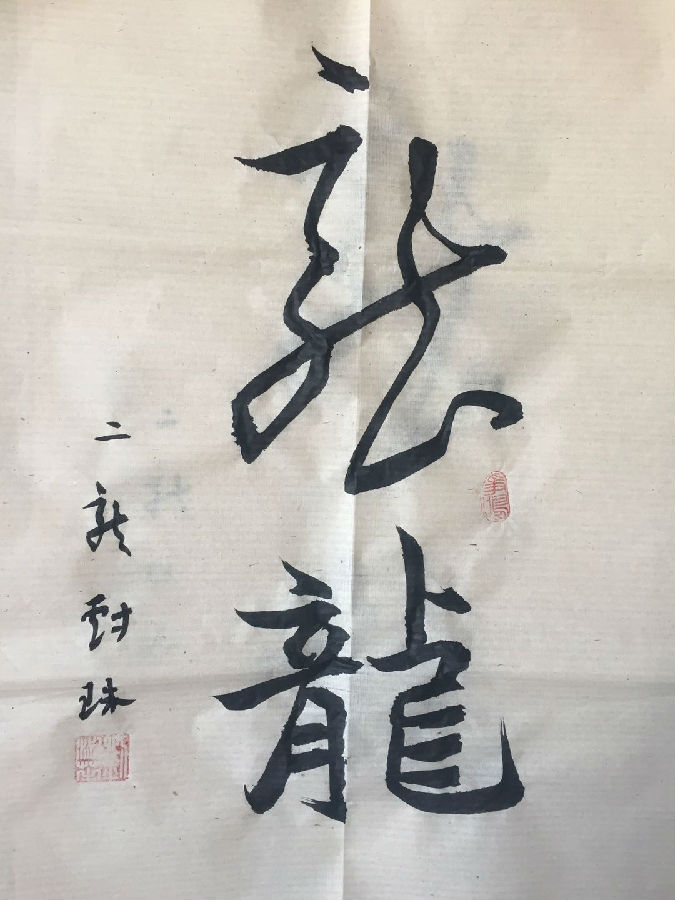 龍龍
二龍戲珠